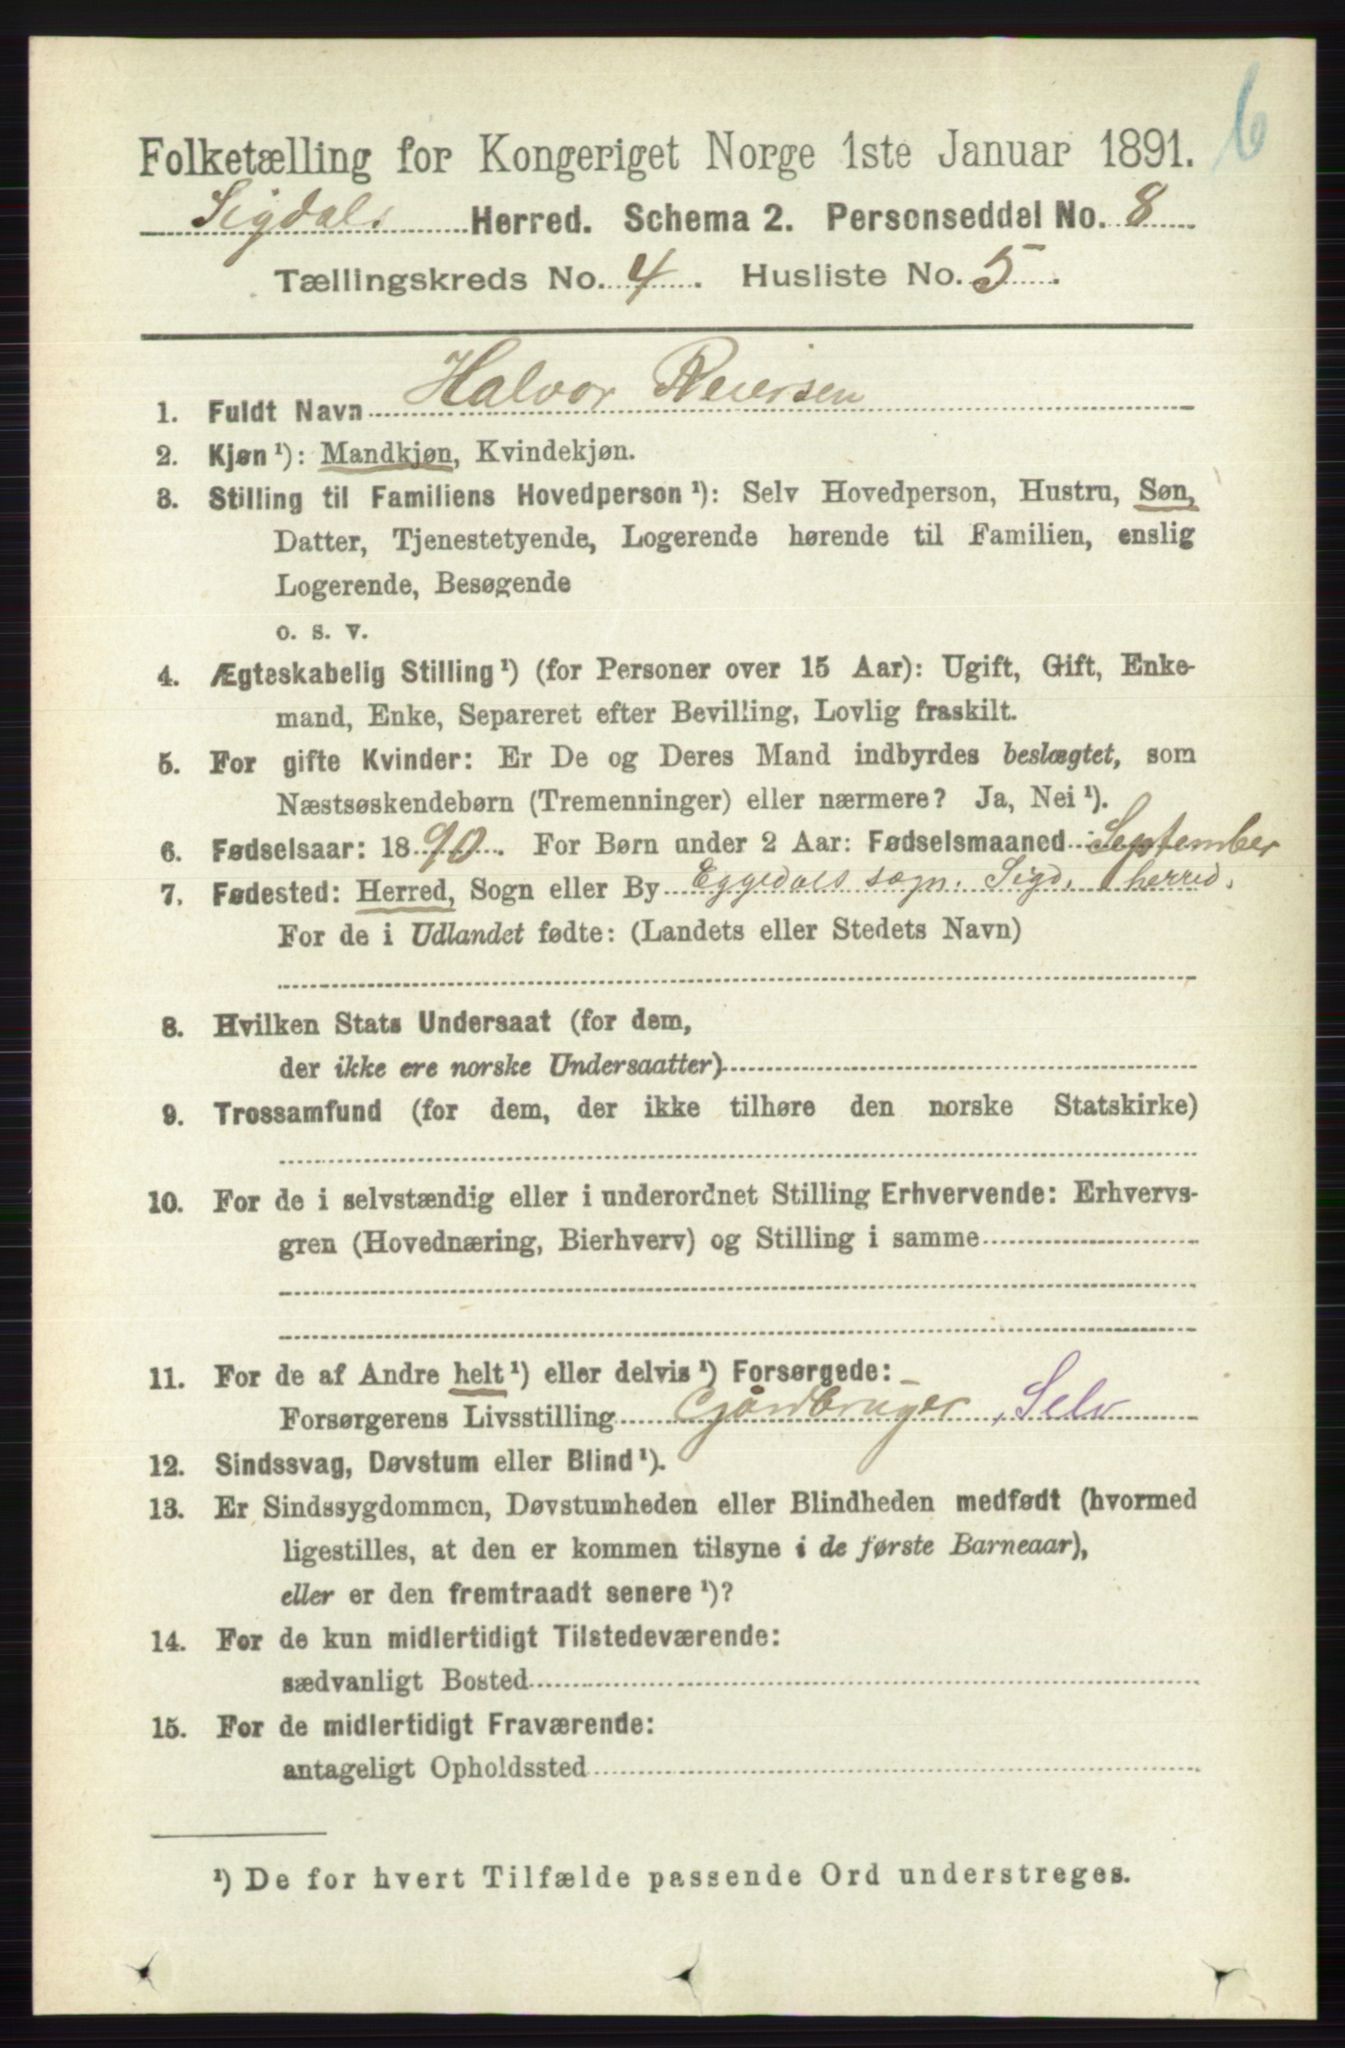 6
Folketælling for Kongeriget Norge 1ste Januar 1891.
Sigdals Herred. Schema 2. Personseddel No. 8
Tællingskreds No. 4. Husliste No. 5.
1. Fuldt Navn Halvor Reiersen
2. Kjøn ¹): Mandkjøn, Kvindekjøn.
3. Stilling til Familiens Hovedperson ¹): Selv Hovedperson, Hustru, Søn,
Datter, Tjenestetyende, Logerende hørende til Familien, enslig
Logerende, Besøgende
o. s. v.
4. Ægteskabelig Stilling ¹) (for Personer over 15 Aar): Ugift, Gift, Enke-
mand, Enke, Separeret efter Bevilling, Lovlig fraskilt.
5. For gifte Kvinder: Er De og Deres Mand indbyrdes beslægtet, som
Næstsøskendebørn (Tremenninger) eller nærmere? Ja, Nei ¹).
6. Fødselsaar: 1890. For Børn under 2 Aar: Fødselsmaaned September
7. Fødested: Herred, Sogn eller By Eggedals sogn. Sigd. herred.
For de i Udlandet fødte: (Landets eller Stedets Navn)
8. Hvilken Stats Undersaat (for dem,
der ikke ere norske Undersaatter)
9. Trossamfund (for dem, der ikke tilhøre den norske Statskirke)
10. For de i selvstændig eller i underordnet Stilling Erhvervende: Erhvervs-
gren (Hovednæring, Bierhverv) og Stilling i samme
11. For de af Andre helt ¹) eller delvis ¹) Forsørgede:
Forsørgerens Livsstilling Gårdbruger, Selv
12. Sindssvag, Døvstum eller Blind ¹).
13. Er Sindssygdommen, Døvstumheden eller Blindheden medfødt (hvormed
ligestilles, at den er kommen tilsyne i de første Barneaar),
eller er den fremtraadt senere ¹)?
14. For de kun midlertidigt Tilstedeværende:
sædvanligt Bosted
15. For de midlertidigt Fraværende:
antageligt Opholdssted
¹) De for hvert Tilfælde passende Ord understreges.